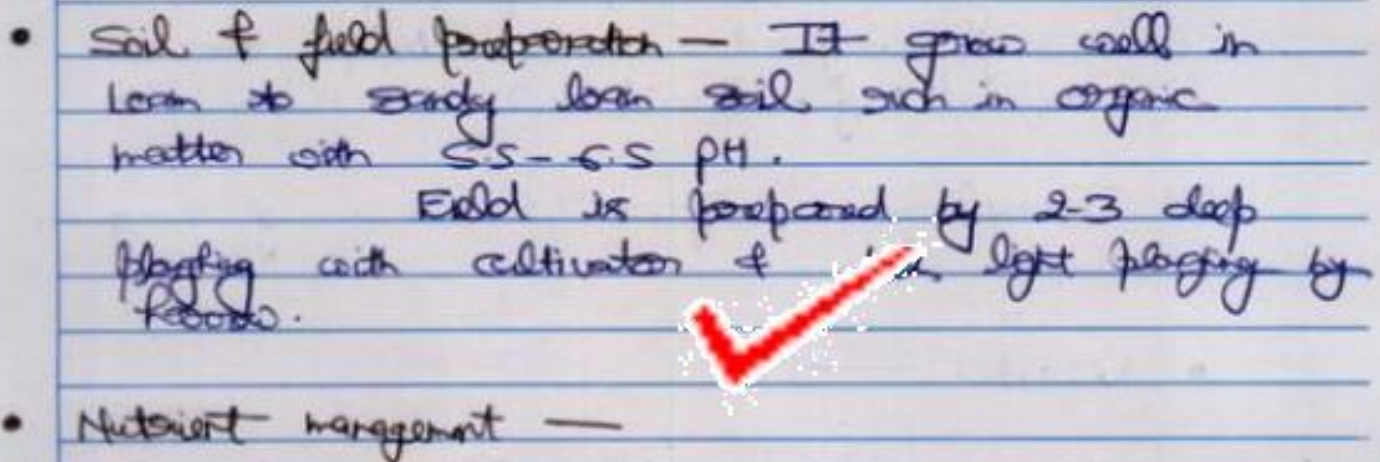 • Soil & field preparation — It grows well in
Loam to sandy loam soil rich in organic
matter with 5.5-6.5 pH.
Field is prepared by 2-3 deep
ploghing with cultivator & light ploging by
• Nutrient management —